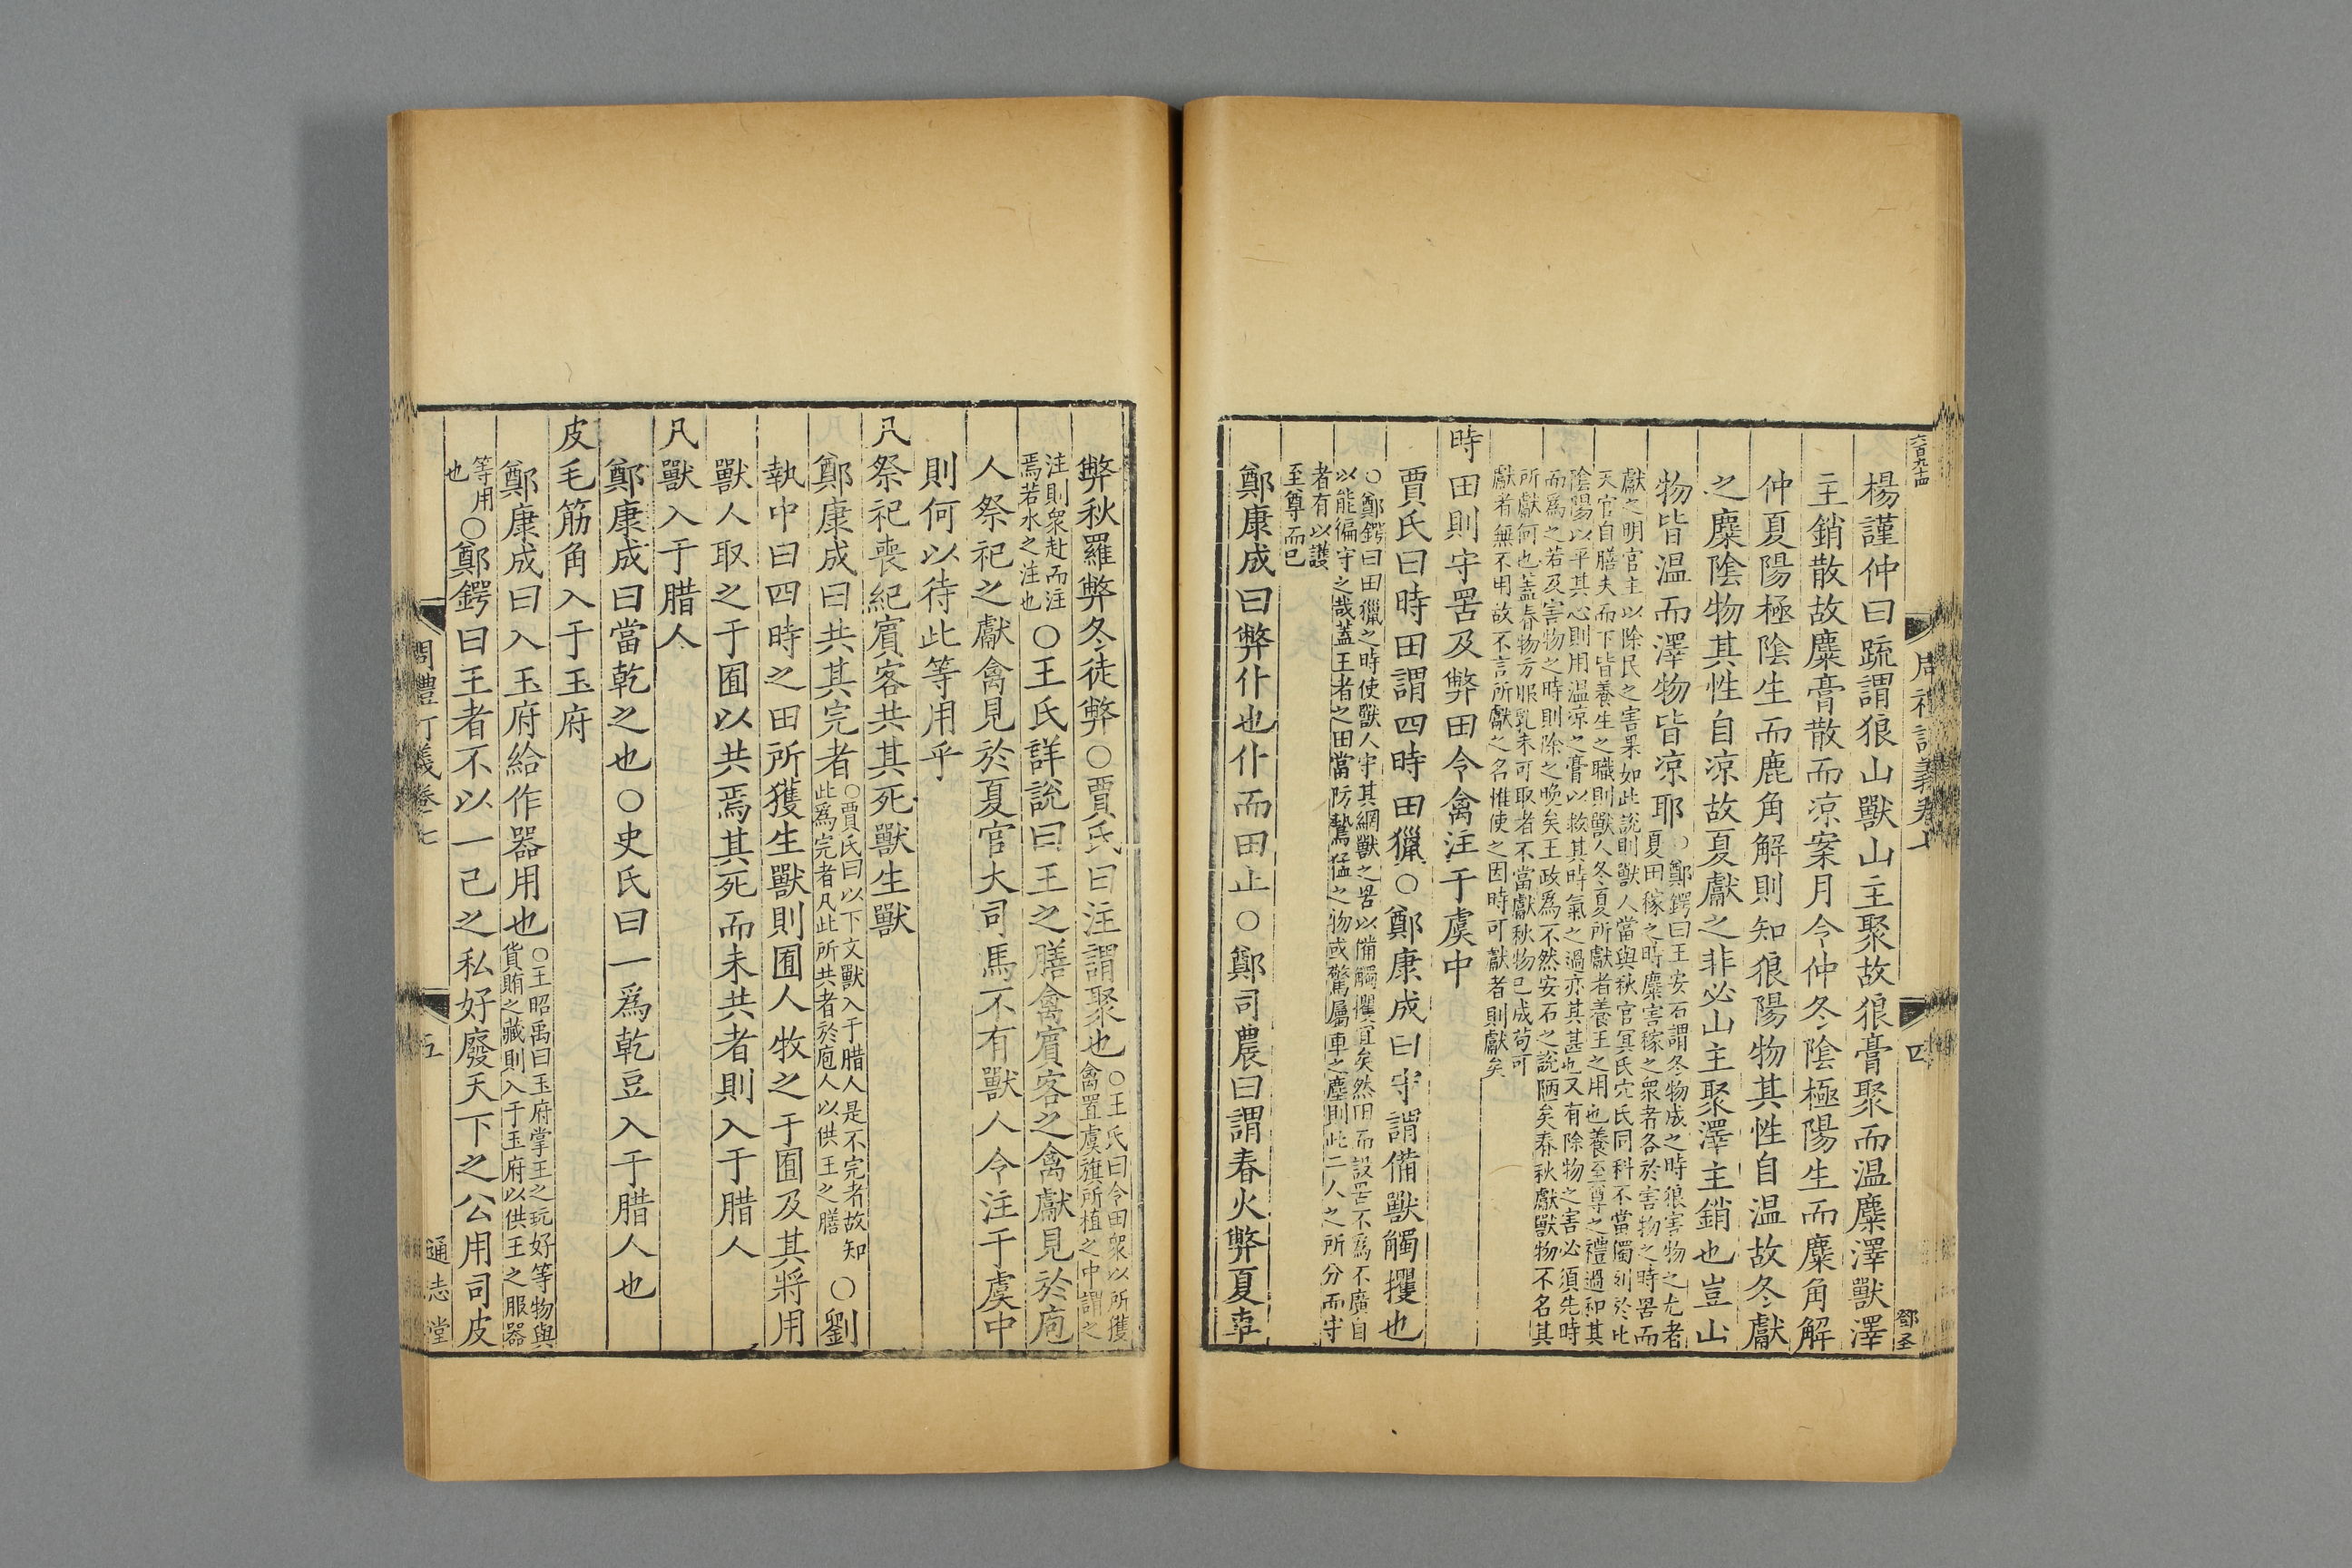 六百九十四
周禮訂義卷七
四
鄧圣
楊謹仲曰疏謂狼山獸山主聚故狼膏聚而温麋澤獸澤
主銷散故麋膏散而凉案月令仲冬陰極陽生而麋角解
仲夏陽極陰生而鹿角解則知狼陽物其性自温故冬獻
之麋陰物其性自凉故夏獻之非必山主聚澤主銷也豈山
物皆温而澤物皆凉耶
○鄭鍔曰王安石謂冬物成之時狼害物之尤者
夏田稼之時麋害稼之衆者各於害物之時罟而
獻之明官主以除民之害果如此說則獸人當與秋官冥氏穴氏同科不當獨列於此
天官自膳夫而下皆養生之職則獸人冬夏所獻者養王之用也養至尊之禮過和其
陰陽以平其心則用温凉之膏以救其時氣之過亦其甚也又有除物之害必須先時
而爲之若及害物之時則除之晚矣王政爲不然安石之說陋矣春秋獻獸物不名其
所獻何也蓋春物方孳乳未可取者不當獻秋物已成苟可
獻者無不用故不言所獻之名惟使之因時可獻者則獻矣
時田則守罟及弊田令禽注于虞中
賈氏曰時田謂四時田獵○鄭康成曰守謂備獸觸攫也
○鄭鍔曰田獵之時使獸人守其網獸之罟以備觸攫宜矣然田而設罟不爲不廣自
以能徧守之哉蓋王者之田當防鷙猛之物或驚屬車之塵則此二人之所分而守
者有以護
至尊而已
鄭康成曰弊仆也仆而田止○鄭司農曰謂春火弊夏車
弊秋羅弊冬徒弊○賈氏曰注謂聚也
○王氏曰令田衆以所獲
禽置虞旗所植之中謂之
注則衆赴而注
焉若水之注也
○王氏詳說曰王之膳禽賓客之禽獻見於庖
人祭祀之獻禽見於夏官大司馬不有獸人令注于虞中
則何以待此等用乎
凡祭祀喪紀賓客共其死獸生獸
鄭康成曰共其完者
○賈氏曰以下文獸入于腊人是不完者故知
此爲完者凡此所共者於庖人以供王之膳
○劉
執中曰四時之田所獲生獸則囿人牧之于囿及其將用
獸人取之于囿以共焉其死而未共者則入于腊人
凡獸入于腊人
鄭康成曰當乾之也○史氏曰一爲乾豆入于腊人也
皮毛筋角入于玉府
鄭康成曰入玉府給作器用也
○王昭禹曰玉府掌王之玩好等物與
貨賄之藏則入于玉府以供王之服器
等用
也
○鄭鍔曰王者不以一己之私好廢天下之公用司皮
周禮訂義卷七
五
通志堂